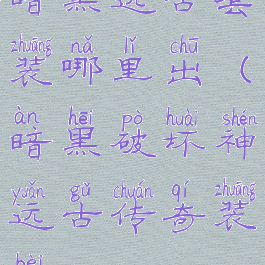 暗黑远古套
zhuāng nǎ lǐ chū
装哪里出（
àn hēi pò huài shén
暗黑破坏神
yuǎn gǔ chuán qí zhuāng
远古传奇装
bèi